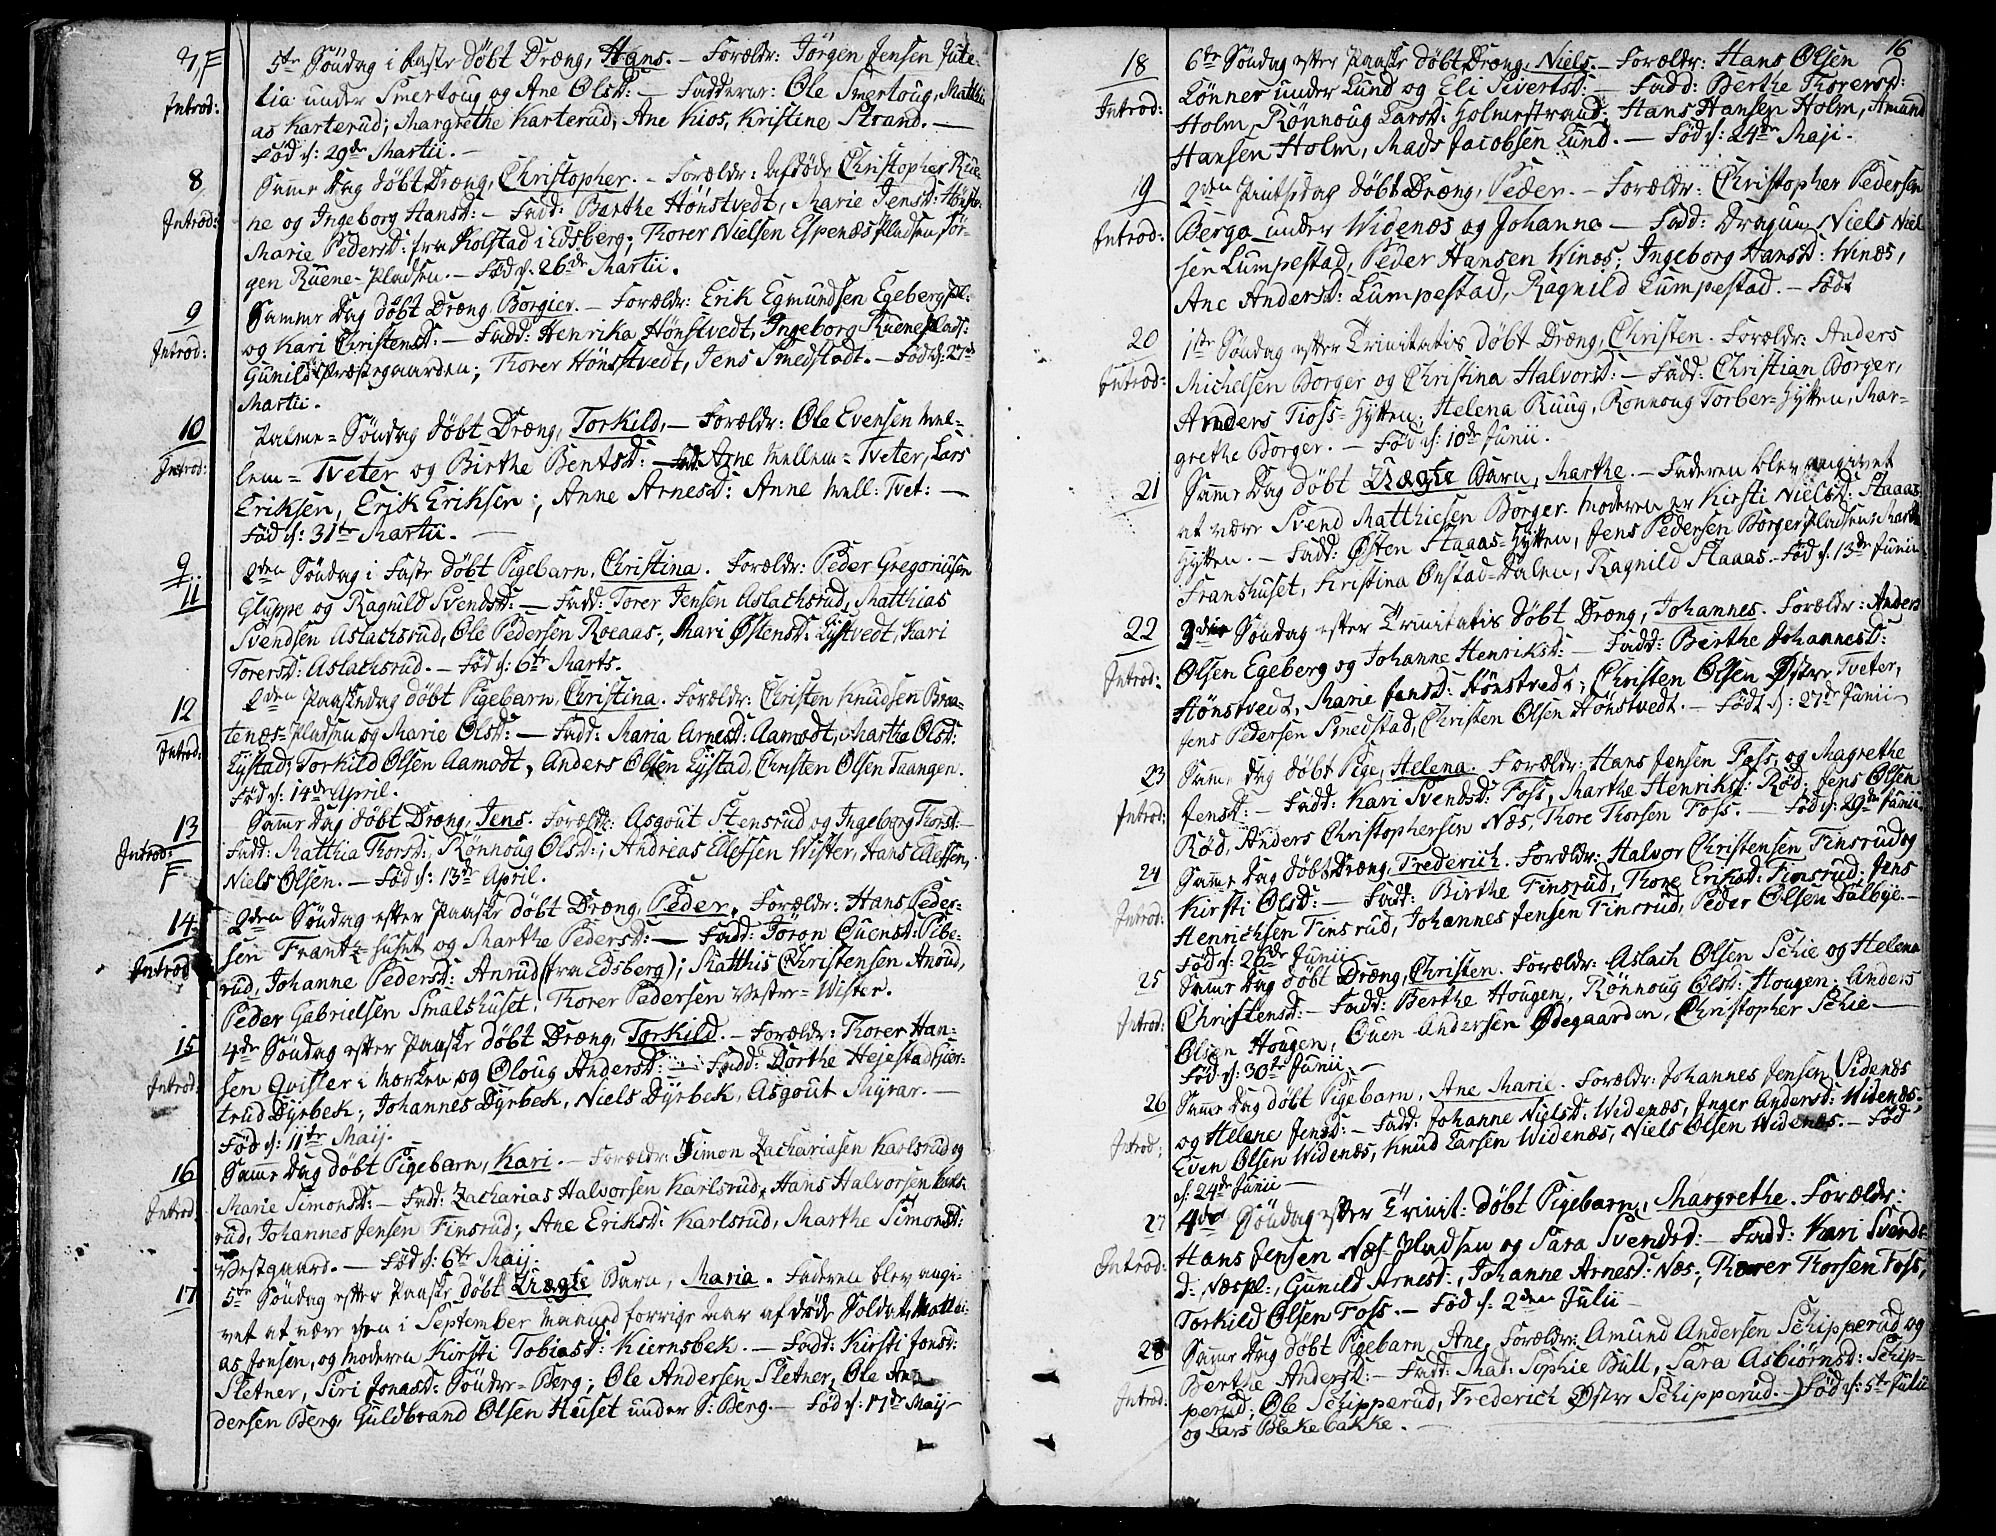 7, F
5te Söndag i Faste döbt Dræng, Hans. – Forældr: Jörgen Jensen Jute-
Introd:
lia under Smertoug og Ane Olsd: – Fadderne: Ole Smertoug, Matthi
as Karterud; Margrethe Karterud, Ane Kios, Kristine Strand. –
Föd d: 29de Martii. –
8
Samme Dag döbt Dræng, Christopher. – Forældr: Afdöde Christopher Rue-
Introd:
ne og Ingeborg Hansd: – Fadd: Barthe Hönstvedt, Marie Jensd: Hönstv:
Marie Pedersd: fra Kolstad i Edsberg; Thorer Nielsen Espenæs Pladsen Jör-
gen Ruene-Pladsen. – Föd d. 26de Martii.
9
Samme Dag döbt Dræng Borgier. – Forældr: Erik Egmundsen Egeberg Pl:
Introd:
og Kari Christensd: – Fadd: Henrika Hönstvedt, Ingeborg Ruenes Plads:
Gunild Præstegaarden; Thorer Hönstvedt, Jens Smedstadt. – Föd d: 27de
Martii.
10
Palme-Söndag döbt Dræng, Torkild. – Forældr: Ole Evensen Mel-
Introd:
lem-Tveter og Birthe Bentsd: – Fad: Arne Mellem-Tveter, Lars
Eriksen, Erik Eriksen; Anne Arnesd: Anne Mell: Tvet: –
Föd d: 31te Martii. –
9
11
2den Söndag i Faste döbt Pigebarn, Christina. Forældr: Peder Gregoriusen
Gluppe og Ragnild Svendsd: – Fadd: Torer Jensen Aslachsrud, Matthias
Svendsen Aslachsrud, Ole Pedersen Roeaas; Mari Östensd: Lystvedt, Kari
Torersd: Aslachsrud. – Föd d: 6te Marts.
12
2den Paaskedag döbt Pigebarn, Christina. Forældr: Christen Knudsen Braa-
Introd:
tenæs-Pladsen og Marie Olsd: – Fadd: Maria Arnesd: Aamodt, Martha Olsd:
Lystad; Torkild Olsen Aamodt, Anders Olsen Lystad, Christen Olsen Taangen.
Föd d: 14de April.
13
Samme Dag döbt Dræng, Jens. Forældr: Asgout Stensrud og Ingeborg Thorsd: –
Introd:
F
Fadd: Matthia Thorsd:, Rönnoug Olsd:; Andreas Ellefsen Wister, Hans Ellefsen,
Niels Olsen. – Föd d: 13de April.
14
2den Söndag efter Paaske döbt Dræng, Peder. Forældr: Hans Peder-
Introd
sen Frantz huset og Marthe Pedersd: – Fadd: Jöron Ouensd: Pibe-
rud, Johanne Pedersd: Anrud (fra Edsberg); Matthis Christensen Anrud,
Peder Gabrielsen Smalshuset, Thorer Pedersen Vester-Wister.
15
4de Söndag efter Paaske döbt Dræng, Torkild. – Forældr: Thorer Han-
Introd:
sen Qvisler i Morken og Oloug Andersd: – Fadd: Dorthe Hejestad Gier-
trud Dyrbek; Johannes Dyrbek, Niels Dyrbek, Asgout Myrar. –
Föd d: 11te Maij.
16
Samme Dag döbt Pigebarn, Kari. – Forældr: Simon Zachariasen Karlsrud og
Introd
Marie Simonsd: – Fadd: Zacharias Halvorsen Karlsrud, Hans Halvorsen Karls-
rud, Johannes Jensen Finsrud; Ane Eriksd: Karlsrud, Marthe Simonsd:
Westgaard. – Föd d: 6te Maij.
17
5te Söndag efter Paaske döbt Uægte Barn, Maria. Faderen blev angi-
vet at være den i September Maaned forrige Aar afdöde Soldat, Matthi-
as Jonsen, og Moderen Kirsti Tobiasd: Kiernsbek. – Fadd: Kirsti Jonsd:
Sletner, Siri Jonasd: Sönder-Berg; Ole Andersen Sletner, Ole An-
dersen Berg, Guldbrand Olsen Huset under S: Berg. – Föd d: 17de Maij –
16
18
6te Söndag efter Paaske döbt Dræng, Niels. – Forældr: Hans Olsen
Introd:
Lönner under Lund og Eli Sivertsd: – Fadd: Berthe Thorersd:
Holm, Rönnoug Larsd: Holmestrand; Hans Hansen Holm, Amund
Hansen Holm, Mads Jacobsen Lund. – Föd d: 24de Maji –
19
2den Pintsedag döbt Dræng, Peder. – Forældr: Christopher Pedersen
Introd:
Berga under Widenæs og Johanna – Fadd: Dragun Niels Niel-
sen Lumpestad, Peder Hansen Winæs; Ingeborg Hansd: Winæs,
Ane Andersd: Lumpestad, Ragnild Lumpestad. – Födt
20
1ste Söndag efter Trinitatis döbt Dræng, Christen. Forældr: Anders
Introd:
Michelsen Borger og Christina Halvorsd: – Fadd: Christian Borger,
Anders Floss-Hytten; Helena Ruug, Ronnoug Torber-Hytten, Mar-
grethe Borger. – Föd d: 10de Junii.
21
Samme Dag döbt Uægte Barn, Marthe. – Faderen blev angivet
at være Svend Matthiesen Borger. Moderen er Kirsti Nielsd: Staaas
Hytten. – Fadd: Östen Staaas-Hytten, Jens Pedersen Borger Pladsen; Marthe
Franshuset, Kristina Onstad-Dalen, Ragnild Staaas. Föd d. 13de Junii
22
3die Söndag efter Trinitatis döbt Dræng, Johannes. Forældr: Anders
Introd:
Olsen Egeberg og Johanne Henriksd: – Fadd: Berthe Johannesd:
Hönstvedt, Marie Jensd: Hönstvedt; Christen Olsen Öster Tveter,
Jens Pedersen Smedstad, Christen Olsen Hönstvedt. – Födt d: 27de Junii –
23
Samme Dag döbt Pige, Helena. Forældr: Hans Jensen Foss, og Magrethe
Introd:
Jensd: – Fadd: Kari Svendsd: Foss, Marthe Henriksd: Röd; Jens Olsen
Röd, Anders Christophersen Næs, Thore Thorsen Foss. – Föd d: 29de Junii
24
Samme Dag döbt Dræng, Frederich. Forældr: Halvor Christensen Finsrud og
Introd:
Kirsti Olsd: – Fadd: Birthe Finsrud, Thore Eriksd: Finsrud; Jens
Henrichsen Finsrud, Johannes Jensen Finsrud, Peder Olsen Dalbye. –
Föd d: 26de Junii
25
Samme Dag döbt Dræng, Christen. Forældr: Aslach Olsen Schie og Helena
Introd:
Christensd: – Fadd: Berthe Hougen, Rönnoug Olsd: Hougen; Anders
Olsen Hougen, Ouen Andersen Ödegaarden, Christopher Schie –
Föd d: 30te Junii. –
26
Samme Dag döbt Pigebarn, Ane Marie. Forældr: Johannes Jensen Videnæs
Introd:
og Helene Jensd: – Fadd: Johanne Nielsd: Widenæs, Inger Andersd: Widenæs,
Even Olsen Widenæs, Knud Larsen Widenæs, Niels Olsen Widenæs. – Föd
d: 24de Junii –
27
4de Söndag efter Trinit: döbt Pigebarn, Margrethe. Forældr:
Introd:
Hans Jensen Næs Pladsen og Sara Svendsd: – Fadd: Kari Svends-
d: Næspl:, Gunild Arnesd:, Johanne Arnesd: Næs; Thorer Thorsen Foss,
Torkild Olsen Foss. – Föd d: 2den Julii –
28
Samme Dag döbt Pigebarn, Ane. Forældr: Amund Andersen Schipperud og
Introd:
Berthe Andersd: – Fadd: Mad: Sophie Bull, Sara Asbiörnsd: Schip-
perud; Ole Schipperud, Frederich Öster Schipperud. –) Föd d: 5te Julii
og Lars Blekebakke. –